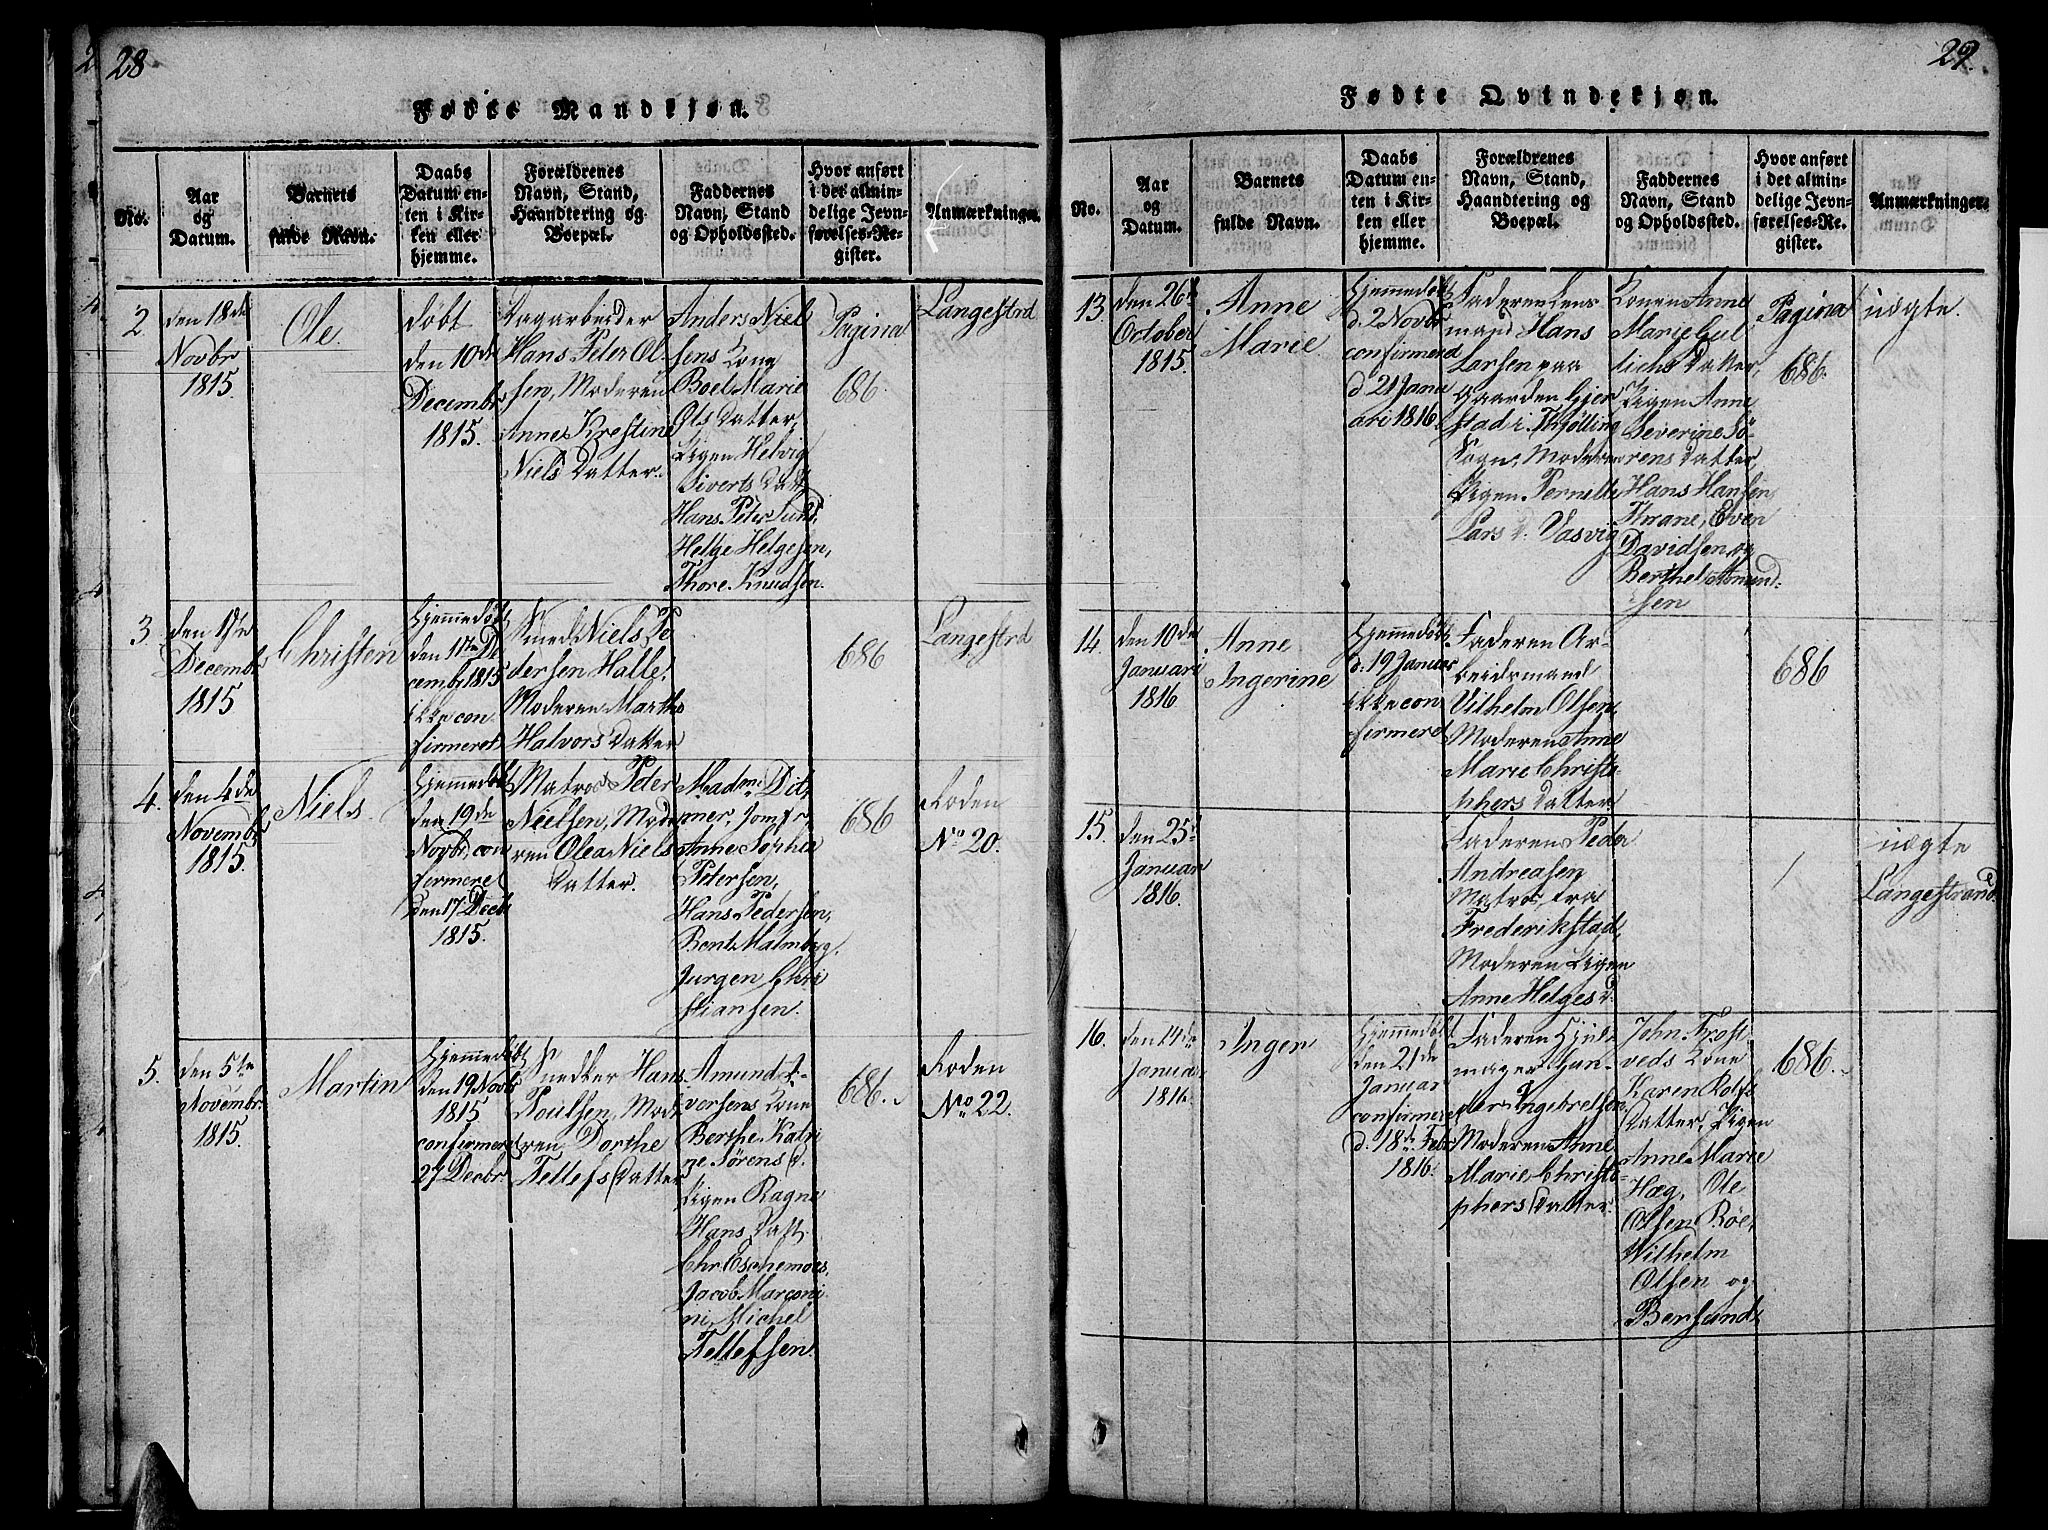 28
Fødte Mandkjøn.
No.
Aar
og
Datum.
Barnets
fulde Navn.
Daabs
Datum en-
ten i Kir-
ken eller
hjemme.
Forældrenes
Navn, Stand,
Haandtering og
Boepæl.
Faddernes
Navn, Stand
og Opholdssted.
Hvor anført
i det almin-
delige Jevn-
førelses-Re-
gister.
Anmærkninger.
2
den 18de
Novbr
1815.
Ole.
døbt
den 10de
Decembr
1815.
Dagarbeider
Hans Peter Ol
sen, Moderen
Anne Krestine
Niels Datter.
Anders Niel
sens Kone
Boel Marie
Ols Datter,
Pigen Helvig
Siverts Datt
Hans Peter Lund,
Helge Helgesen,
Thore Knudsen.
Pagina
686.
Langestrd
3
den
Decembr
1815
Christen
Hjemmedøbt
den 17de De
cembr 1815
ikke con
firmeret
Smed Niels Pe
dersen Halle,
Moderen Marthe
Halvors Datter
686
Langestrd
4.
den 4de
Novembr
1815.
Niels.
Hjemmedøbt
den 19de
Novbr, con
firmeret
den 17 Decb
1815.
Matros Peter
Nielsen, Mode
ren Olea Niels
Datter.
Madme Dit
mer, Jomfr
Anne Sophie
Petersen,
Hans Pedersen,
Bent Malmberg,
Jurgen Chri
stiansen.
686
Loden
No 20.
5.
den 5te
Novembr.
1815.
Martin
Hjemmedøbt
den 19 Novb
1815
confirmeret
27 Decbr.
Snedker Hans
Poulsen, Mode
ren Dorthe
Tellefs Datter
Amund I-
versens Kone
Berthe Katri
ne Sørens d.
Pigen Ragne
Hans Datt.
Chr Eschemoes,
Jacob Marconi
ni, Michel
Tellefsen.
686.
Loden
No 22.
29.
Fødte Qvindekjøn.
No.
Aar
og
Datum.
Barnets
fulde Navn.
Daabs
Datum en-
ten i Kir-
ken eller
hjemme.
Forældrenes
Navn, Stand,
Haandtering og
Boepæl.
Faddernes
Navn, Stand
og Opholdssted.
Hvor anført
i det almin-
delige Jevn-
førelses-Re-
gister.
Anmærkninger.
13.
den 26de
October
1815.
Anne
Marie.
Hjemmedøbt
d. 2 Novbr
confirmered
d. 21 Janu
ari 1816.
Faderen Lens
mand Hans
Larsen paa
Gaarden Gjer
stad i Thjølling
Sogn, Moderen
Pigen Pernille
Lars d. Vasvig
Konen Anne
Marie Gul
lichs Datter,
Pigen Anne
Severine Sø-
rens Datter,
Hans Hansen
Thrane, Even
Davidsen, og
Berthel Amund-
sen
Pagina
686.
uægte.
14.
den 10de
Januari
1816.
Anne
Ingerine
Hjemmedøbt
d. 19 Januar
ikke con
firmered
Faderen Ar-
beidsmand
Vilhelm Olsen,
Moderen Anne
Marie Christo-
phers Datter.
686
15.
den 25de
Januar
1816.
Faderen Peder
Andreasen
Matros, fra
Frederikstad,
Moderen Pigen
Anne Helges d.
/
uægte
Langestrand.
16.
den 14de
Januar
1816.
Inger
Hjemmedøbt
den 21de
Januar
confirmeret
d. 18de Febr
1816.
Faderen Hjul-
mager Gun-
der Ingebretsen
Moderen Anne
Marie Christo-
phers Datter.
John Trost
veds Kone
Karen Rolfs
Datter, Pigen
Anne Marie
Hæg, Ole
Olsen Røe,
Wilhelm
Olsen og
Bersund.
686.